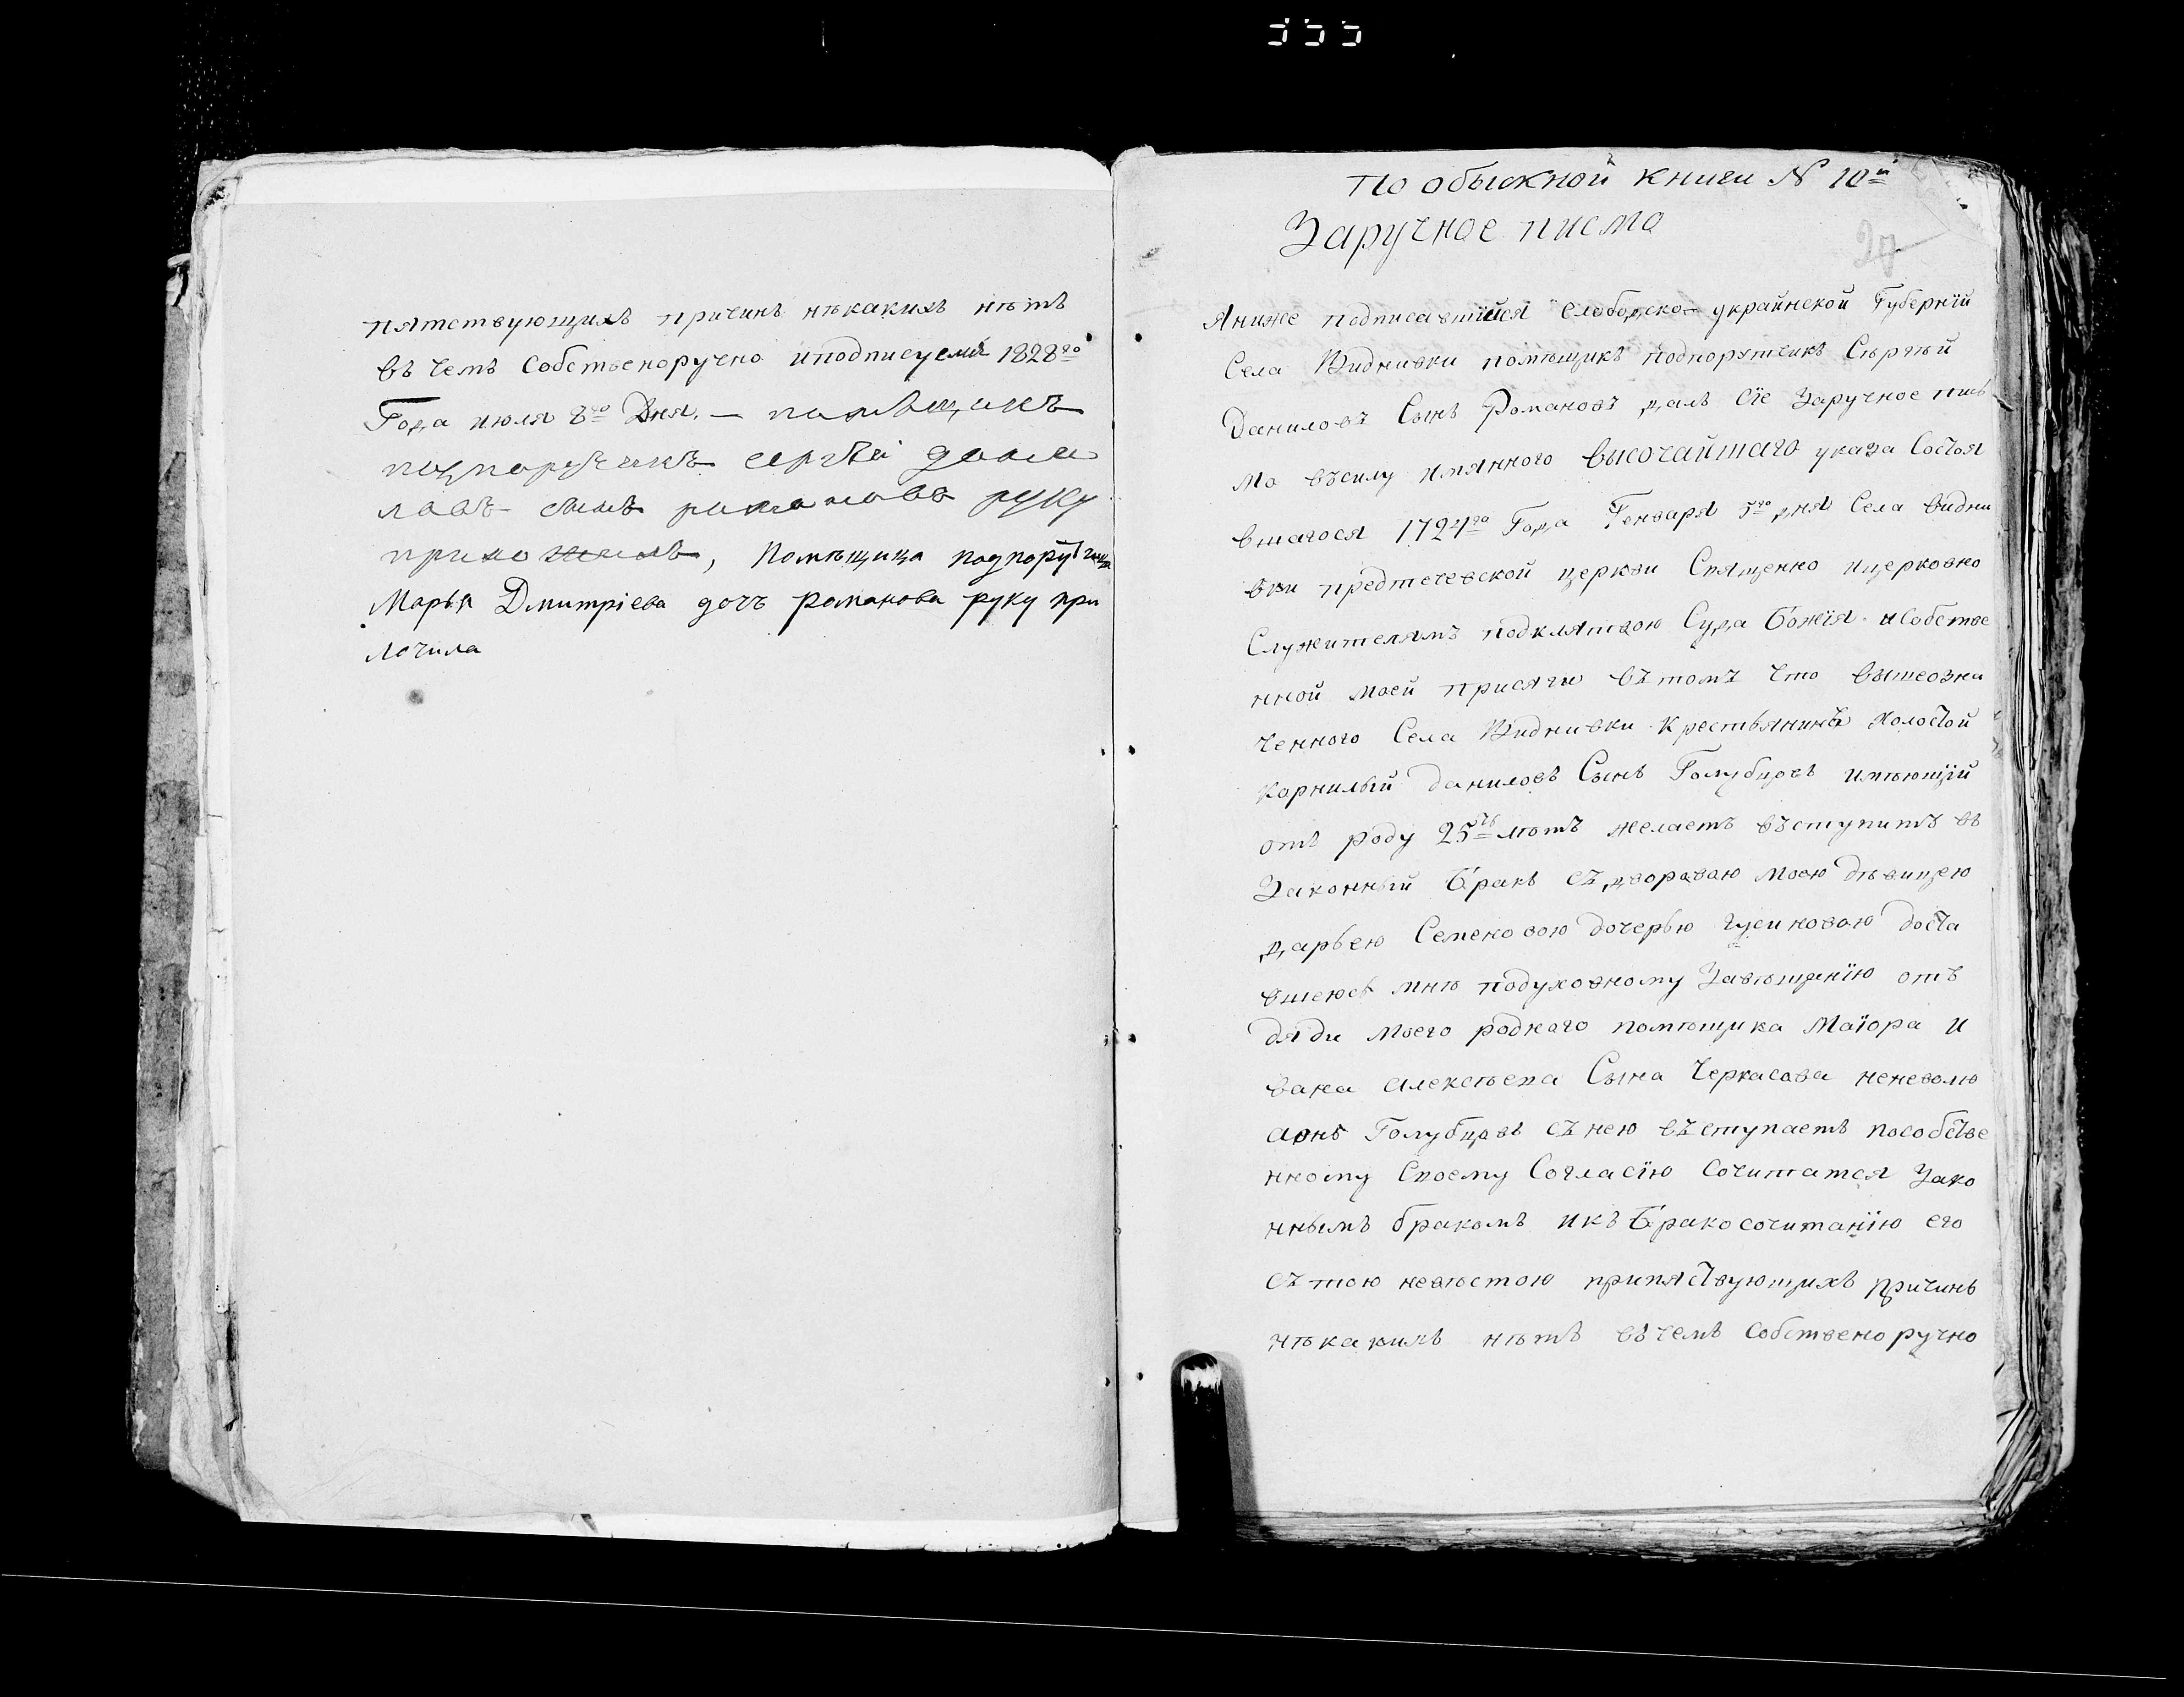 пятствующихъ причинъ нѣкакихъ нѣтъ
въ чемъ собственоручно иподписуемся 1828го
Года июля 8го Дня. — помѣщикъ
подпоручикъ сергѣй дани
ловъ сынъ романовъ руку
приложилъ, Помѣщица подпоручица
Марья Дмитріева дочъ романова руку при
ложила
По обыскной книги N 10й
Заручное писмо
27
Яниже подписавшийся Слободско-украинской Губернїи
Села Виднивки помѣщикъ подпорутчикъ Сѣргѣй
Даниловъ Сынъ Романовъ далъ сїе Заручное пис
мо въсилу имянного высочайшаго указа Состоя
вшагося 1724го Года Генваря 5го дня Села видни
вки предтечевской церкви Священно ицерковно
Служителямъ подклятвою Суда Божїя исобстве
нной моей присяги въ томъ что вышеозна
ченного Села Виднивки крестьянинъ холостой
корнилый даниловъ Сынъ Голубцовъ имѣющїй
отъ роду 25ть лѣтъ желаетъ въступить въ
Законный Бракъ съ дворавою моею дѣвицею
дарьею Семеновою дочерью гусиковою доста
вшеюсь мнѣ подуховному Завѣщанїю отъ
дяди моего роднаго помѣщика Маїора И
вана алексѣева Сына Черкасова неневолю
аонъ Голубцовъ съ нею въступаетъ пособстве
нному Своему Согласїю Сочитатся Зако
ннымъ бракомъ икъ Бракосочитанїю его
съ тою невѣстою припяствующихъ причинъ
нѣкакихъ нѣтъ въ чемъ собственоручно